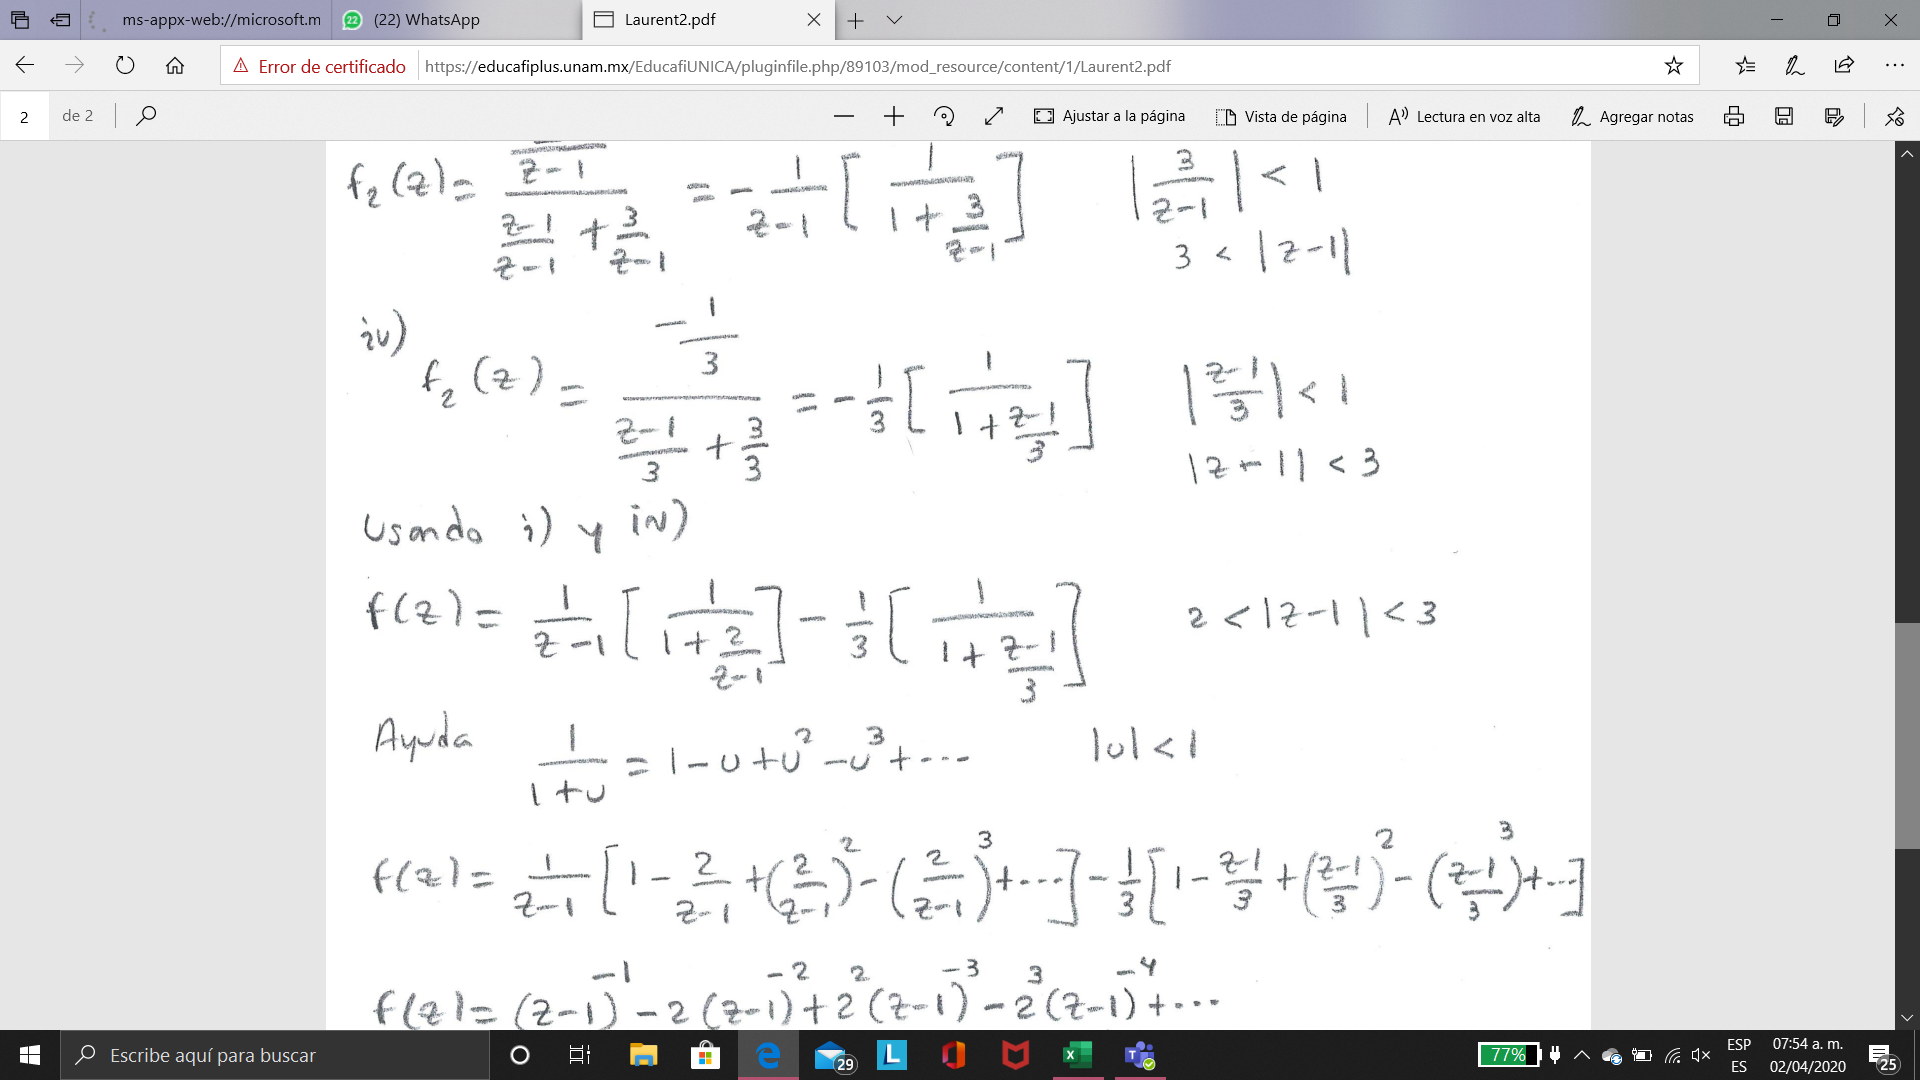 ms-appx-web://microsoft.m (22) WhatsApp Laurent2.pdf
Error de certificado https://educafiplus.unam.mx/EducafiUNICA/pluginfile.php/89103/mod_resource/content/1/Laurent2.pdf
2 de 2 Ajustar a la página Vista de página Lectura en voz alta Agregar notas
f₂(z) = (1/(z-1)) / ((z-1)/(z-1) + 3/(z-1)) = - 1/(z-1) [ 1/(1 + 3/(z-1)) ] |3/(z-1)| < 1
3 < |z-1|
iv)
f₂(z) = (-1/3) / ((z-1)/3 + 3/3) = - 1/3 [ 1/(1 + (z-1)/3) ] |(z-1)/3| < 1
|z-1| < 3
Usando i) y iv)
f(z) = 1/(z-1) [ 1/(1 + 2/(z-1)) ] - 1/3 [ 1/(1 + (z-1)/3) ] 2 < |z-1| < 3
Ayuda 1/(1+u) = 1 - u + u² - u³ + ··· |u| < 1
f(z) = 1/(z-1) [ 1 - 2/(z-1) + (2/(z-1))² - (2/(z-1))³ + ···] - 1/3 [ 1 - (z-1)/3 + ((z-1)/3)² - ((z-1)/3)³ + ···]
f(z) = (z-1)⁻¹ - 2(z-1)⁻² + 2²(z-1)⁻³ - 2³(z-1)⁻⁴ + ···
Escribe aquí para buscar 29 77% ESP 07:54 a. m.
ES 02/04/2020 25